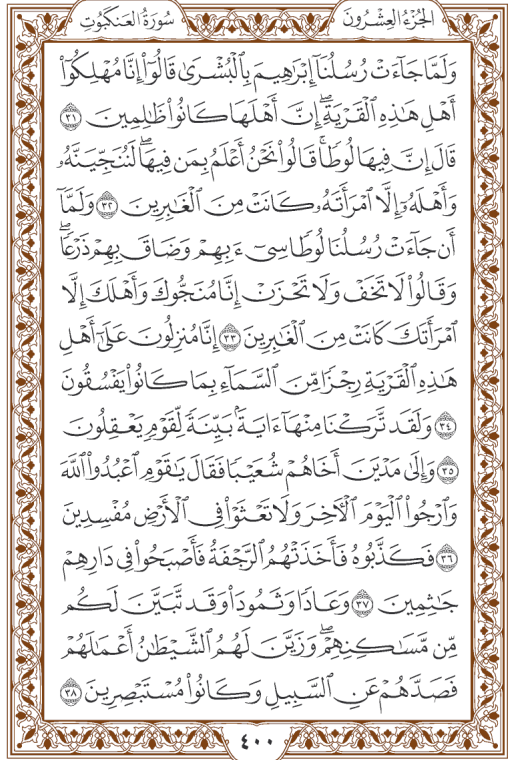 الجُزْءُ العِشْرُونَ
سُورَةُ العَنكَبُوتِ
وَلَمَّا جَآءَتْ رُسُلُنَآ إِبْرَٰهِيمَ بِٱلْبُشْرَىٰ قَالُوٓا۟ إِنَّا مُهْلِكُوٓا۟
أَهْلِ هَٰذِهِ ٱلْقَرْيَةِ ۖ إِنَّ أَهْلَهَا كَانُوا۟ ظَٰلِمِينَ ٣١
قَالَ إِنَّ فِيهَا لُوطًا ۚ قَالُوا۟ نَحْنُ أَعْلَمُ بِمَن فِيهَا ۖ لَنُنَجِّيَنَّهُۥ
وَأَهْلَهُۥٓ إِلَّا ٱمْرَأَتَهُۥ كَانَتْ مِنَ ٱلْغَٰبِرِينَ ٣٢ وَلَمَّآ
أَن جَآءَتْ رُسُلُنَا لُوطًا سِىٓءَ بِهِمْ وَضَاقَ بِهِمْ ذَرْعًا ۖ
وَقَالُوا۟ لَا تَخَفْ وَلَا تَحْزَنْ ۖ إِنَّا مُنَجُّوكَ وَأَهْلَكَ إِلَّا
ٱمْرَأَتَكَ كَانَتْ مِنَ ٱلْغَٰبِرِينَ ٣٣ إِنَّا مُنزِلُونَ عَلَىٰٓ أَهْلِ
هَٰذِهِ ٱلْقَرْيَةِ رِجْزًا مِّنَ ٱلسَّمَآءِ بِمَا كَانُوا۟ يَفْسُقُونَ
٣٤ وَلَقَد تَّرَكْنَا مِنْهَآ ءَايَةًۢ بَيِّنَةً لِّقَوْمٍ يَعْقِلُونَ
٣٥ وَإِلَىٰ مَدْيَنَ أَخَاهُمْ شُعَيْبًا فَقَالَ يَٰقَوْمِ ٱعْبُدُوا۟ ٱللَّهَ
وَٱرْجُوا۟ ٱلْيَوْمَ ٱلْءَاخِرَ وَلَا تَعْثَوْا۟ فِى ٱلْأَرْضِ مُفْسِدِينَ
٣٦ فَكَذَّبُوهُ فَأَخَذَتْهُمُ ٱلرَّجْفَةُ فَأَصْبَحُوا۟ فِى دَارِهِمْ
جَٰثِمِينَ ٣٧ وَعَادًا وَثَمُودَا۟ وَقَد تَّبَيَّنَ لَكُم
مِّن مَّسَٰكِنِهِمْ ۖ وَزَيَّنَ لَهُمُ ٱلشَّيْطَٰنُ أَعْمَٰلَهُمْ
فَصَدَّهُمْ عَنِ ٱلسَّبِيلِ وَكَانُوا۟ مُسْتَبْصِرِينَ ٣٨
٤٠٠